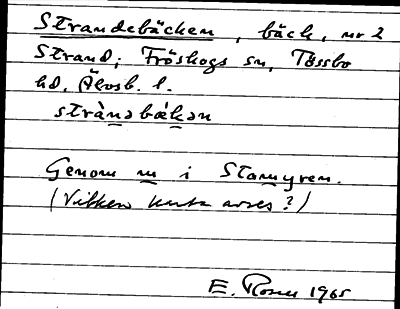 Strandebäcken, bäck, nr 2
Strand; Fröskogs sn, Tössbo
hd, Älvsb. l.
strànəbækən
Genom m i Stamyren.
(Vilken karta avses?)
E. Rosen 1965